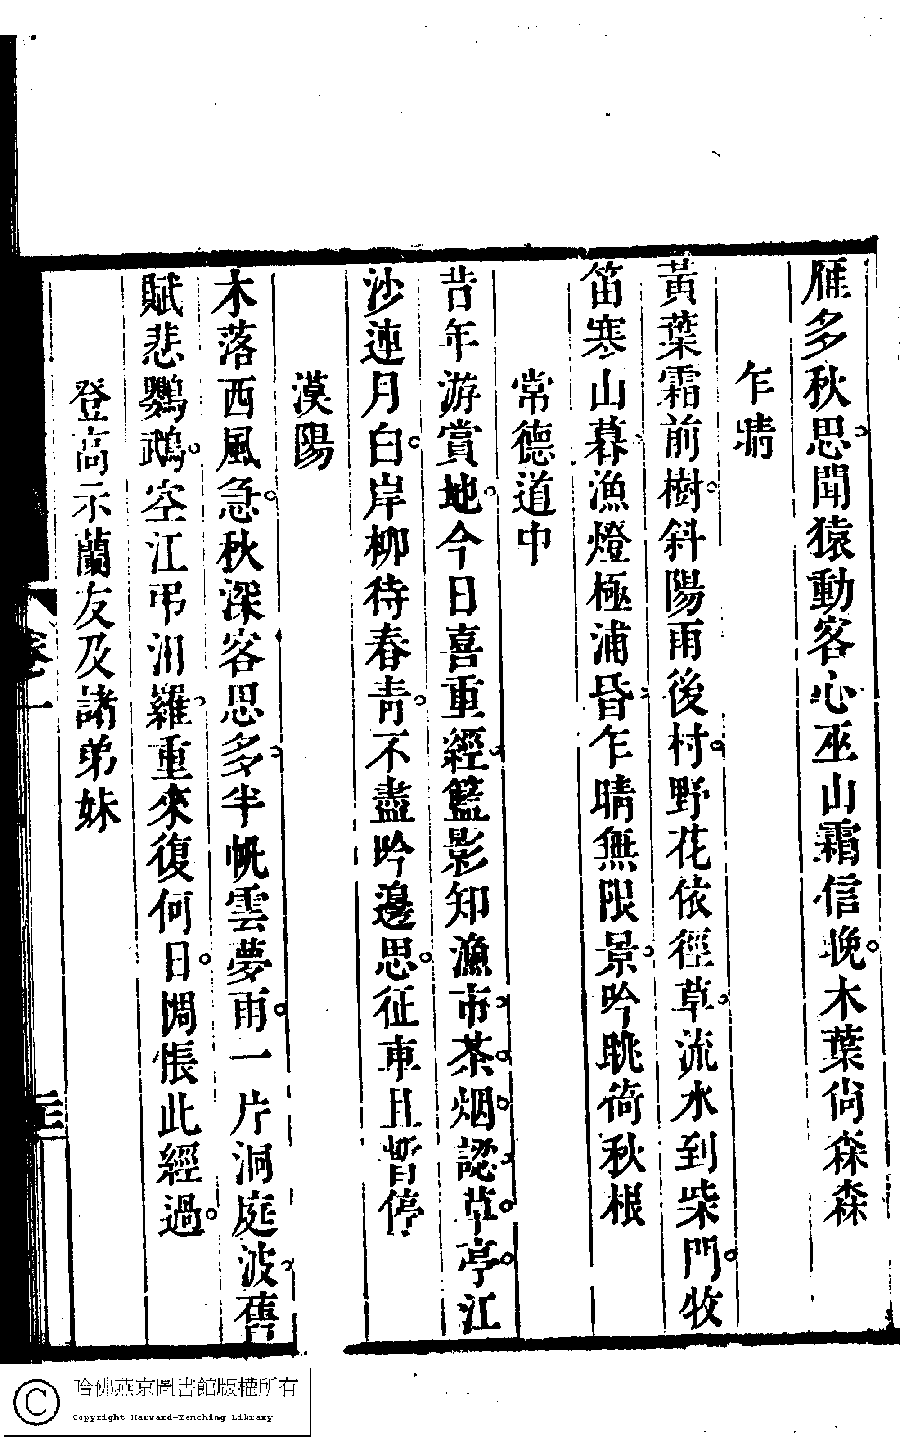 雁多秋思聞猿動客心巫山霜信晚木葉尙森森
乍晴
黃葉霜前樹斜陽雨後村野花依徑草流水到柴門牧
笛寒山暮漁燈極浦昏乍晴無限景吟眺倚秋根
常德道中
昔年游賞地今日喜重經籃影知漁市茶烟認草亭江
沙連月白岸柳待春靑不盡吟邊思征車且暫停
漢陽
木落西風急秋深客思多半帆雲夢雨一片洞庭波舊
賦悲鸚鵡空江弔汨羅重來復何日惆悵此經過
登高示蘭友及諸弟妹
卷一
三
哈佛燕京圖書館版權所有
Copyright Harvard-Yenching Library